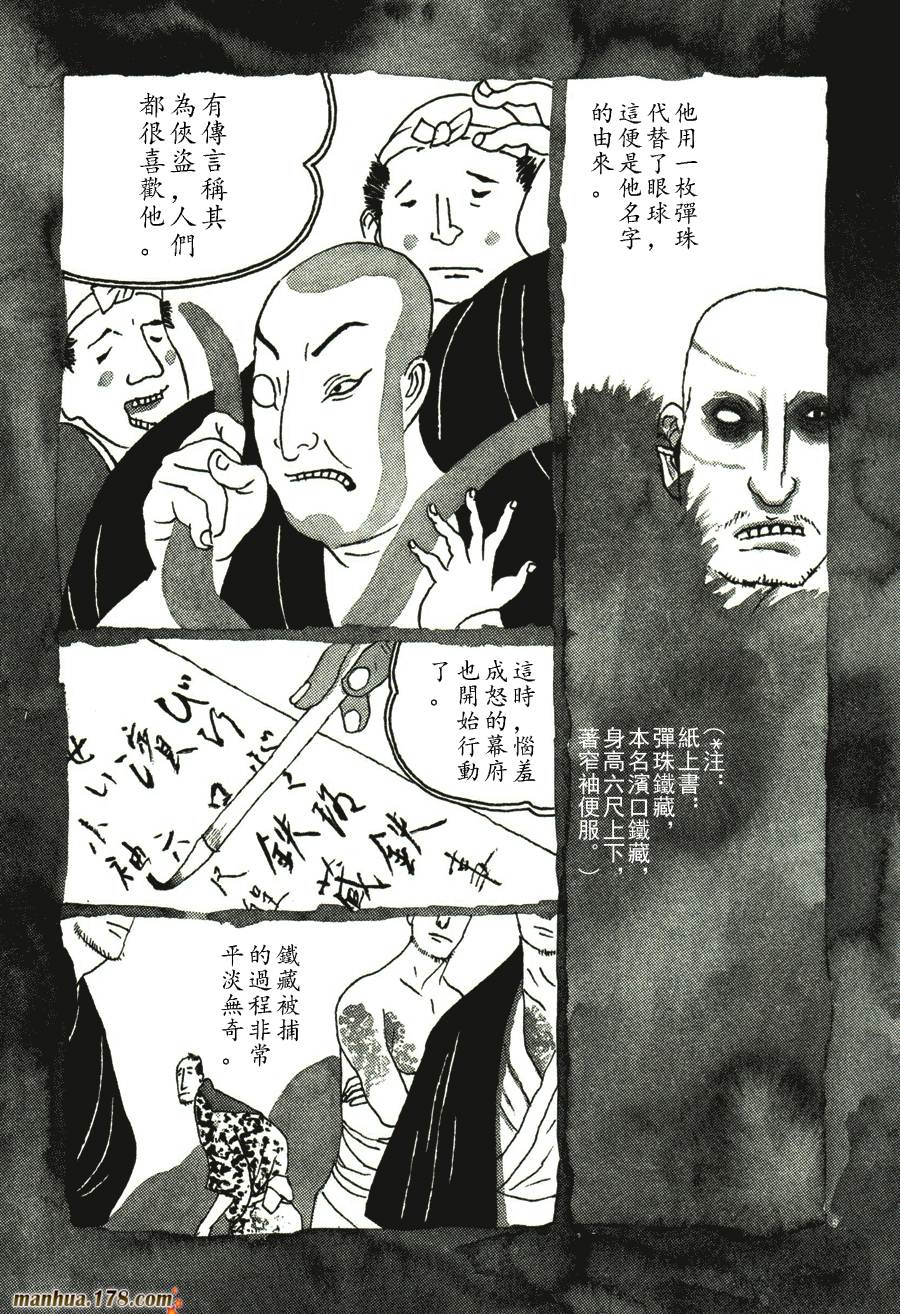 他用一枚彈珠
代替了眼球，
這便是他名字
的由來。
有傳言稱其
為俠盜，人們
都很喜歡他。
（*注：
紙上書：
彈珠鐵藏，
本名濱口鐵藏，
身高六尺上下，
著窄袖便服。）
這時，惱羞
成怒的幕府
也開始行動
了。
鐵藏被捕
的過程非常
平淡無奇。
manhua.178.com